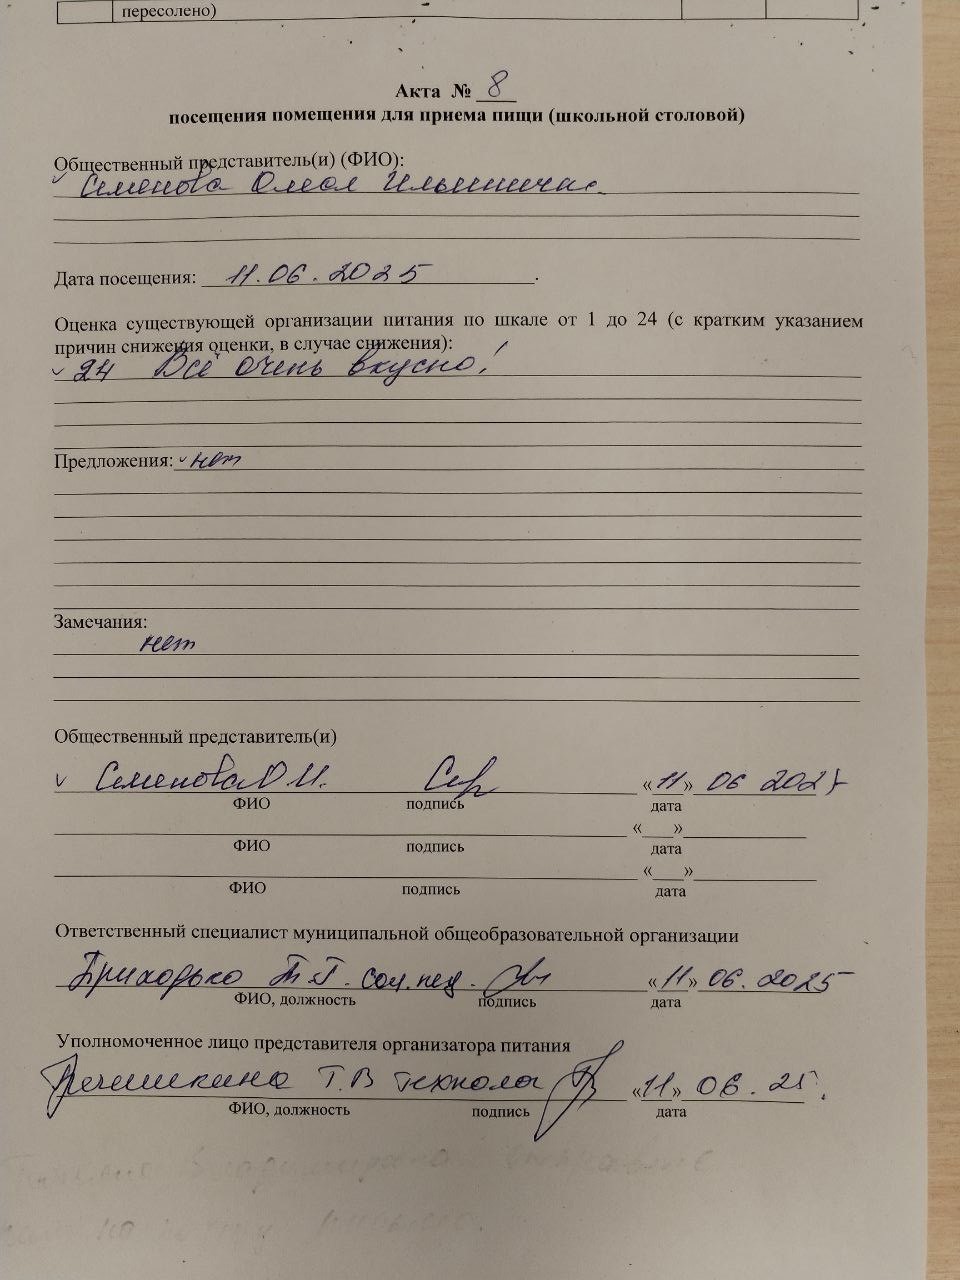 пересолено)
Акта № 8
посещения помещения для приема пищи (школьной столовой)
Общественный представитель(и) (ФИО):
Семенова Ильинична
Дата посещения: 11.06.2025.
Оценка существующей организации питания по шкале от 1 до 24 (с кратким указанием
причин снижения оценки, в случае снижения):
24 Всё очень вкусно!
Предложения: нет
Замечания:
нет
Общественный представитель(и)
Семенова О.И. «11» 06 2025
ФИО подпись дата
«___»
ФИО подпись дата
«___»
ФИО подпись дата
Ответственный специалист муниципальной общеобразовательной организации
Приходько Т.Г. соц.пед. «11» 06.2025
ФИО, должность подпись дата
Уполномоченное лицо представителя организатора питания
Гречишкина Т.В технолог «11» 06.25.
ФИО, должность подпись дата